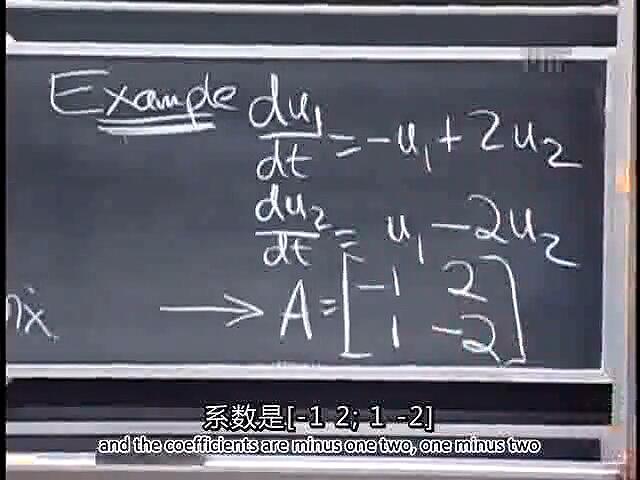 Example du₁/dt = -u₁ + 2u₂
du₂/dt = u₁ - 2u₂
→ A = [-1 2
1 -2]
系数是[-1 2; 1 -2]
and the coefficients are minus one two, one minus two